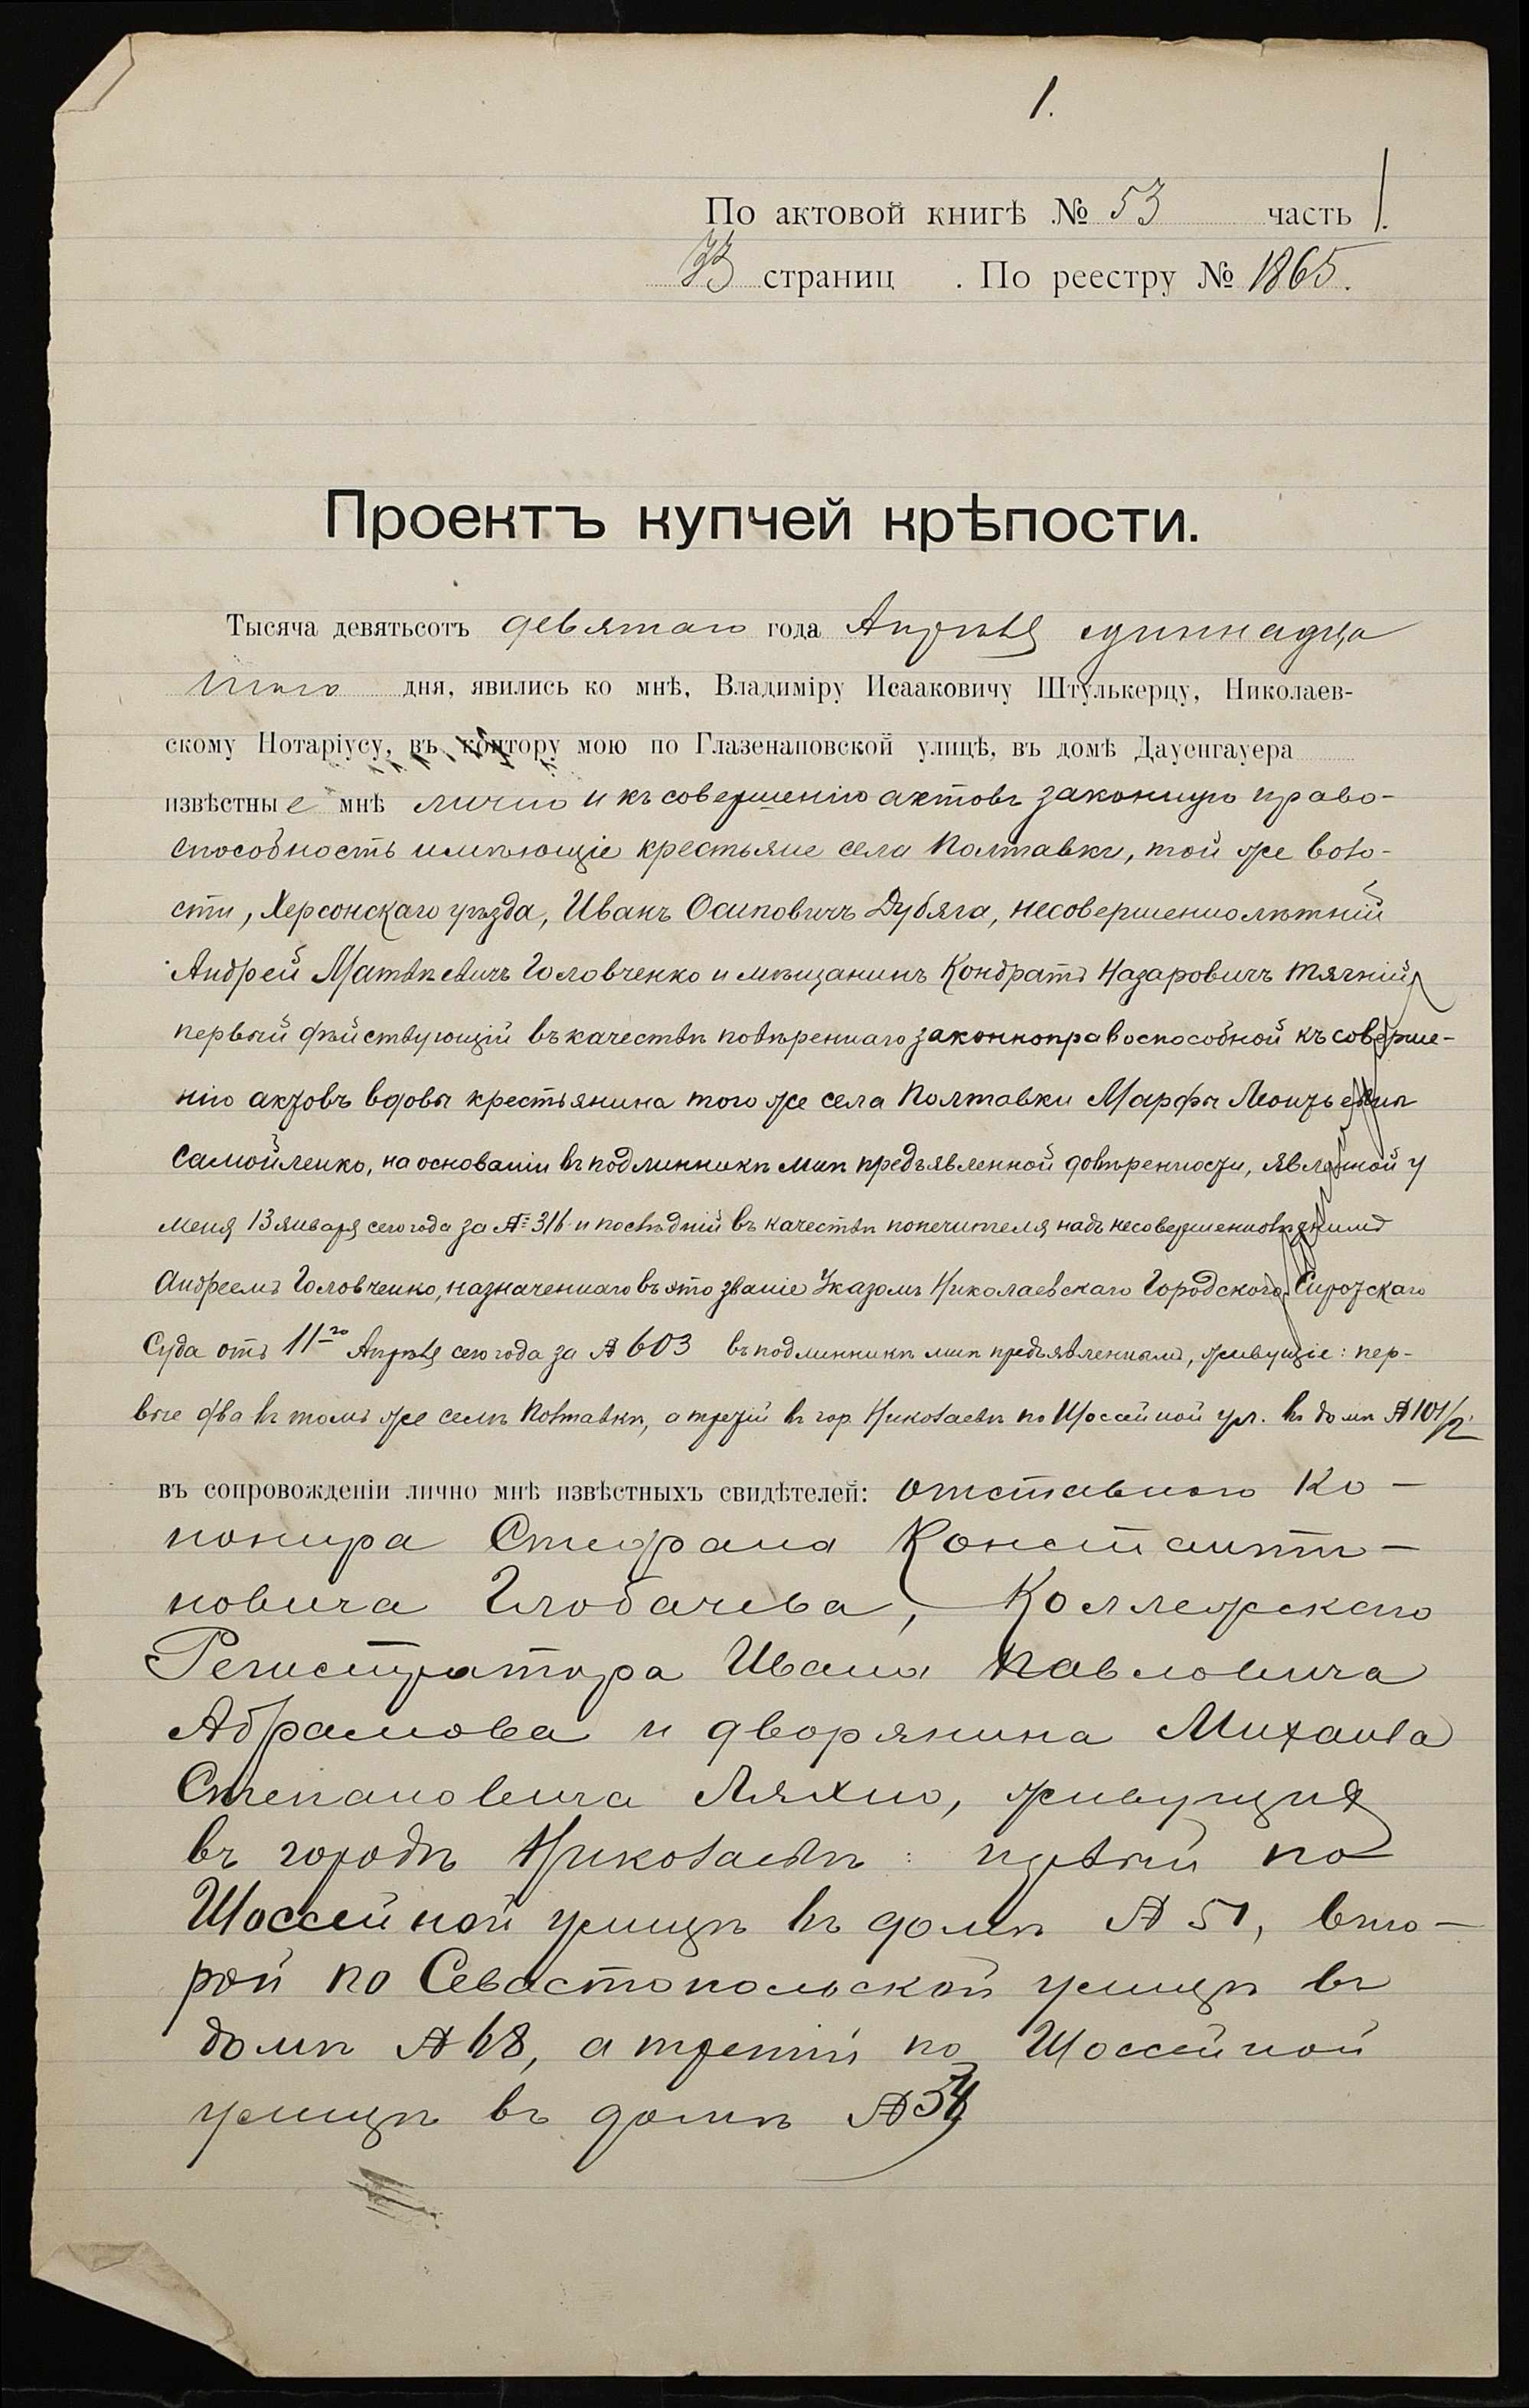 1.
По актовой книгѣ № 53 часть 1.
33 страниц . По реестру № 1865.
Проектъ купчей крѣпости.
Тысяча девятьсотъ девятаго года Апрѣля одиннадца
таго дня, явились ко мнѣ, Владиміру Исааковичу Штулькерцу, Николаев-
скому Нотаріусу, въ контору мою по Глазенаповской улицѣ, въ домѣ Дауенгауера
извѣстные мнѣ лично и къ совершенію актовъ законную право-
способность имѣющіе крестьяне села Полтавки, той же воло-
сти, Херсонскаго уѣзда, Иванъ Осиповичъ Дубяга, несовершеннолѣтній
Андрей Матвѣевичъ Головченко и мѣщанинъ Кондратъ Назаровичъ Тягній,
первый дѣйствующій въ качествѣ повѣреннаго законноправоспособной къ соверше-
нію актовъ вдовы крестьянина того же села Полтавки Марфы
Самойленко, на основаніи въ подлинникѣ мнѣ предъявленной довѣренности, явленной у
меня 13 января сего года за № 316 и послѣдній въ качествѣ попечителя надъ несовершеннолѣтнимъ
Андреемъ Головченко, назначеннаго въ это званіе Указомъ Николаевскаго Городского Сиротскаго
Суда отъ 11го Апрѣля сего года за № 603 въ подлинникѣ мнѣ предъявленнымъ, живущіе: пер-
вые два въ томъ же селѣ Полтавкѣ, а третій въ гор. Николаевѣ по Шоссейной ул. въ домѣ № 101/2
въ сопровожденіи лично мнѣ извѣстныхъ свидѣтелей: отставного Ко-
нонира Стефана Константи-
новича Глобачева, Коллежскаго
Регистратора Ивана Павловича
Абрамова и дворянина Михаила
Степановича Ляхно, живущія
въ городѣ Николаевѣ: первый по
Шоссейной улицѣ въ домѣ № 51, вто-
рой по Севастопольской улицѣ въ
домѣ № 68, а третій по Шоссейной
улицѣ въ домѣ №